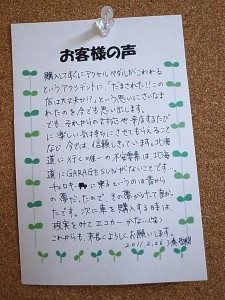 お客様の声
購入してすぐにアクセルペダルがこわれる
というアクシデントに「だまされた!!この
店は大丈夫!?」という思いにさいなま
れたのを今でも思い出します。
でも、それからの対応や来店するたび
に楽しい気持ちにさせてもらえること
など 今では、信頼しきっています。北海
道に行く唯一の不安要素は、北海
道にGARAGE SUNがないことです…。
チェロキーに乗るというのは昔から
の夢だったので、その夢がかなって良かっ
たです。次に車を購入する時は、
現実をみてエコカーかな(笑)
これからも、末長くよろしくお願いします。
2011.2.26